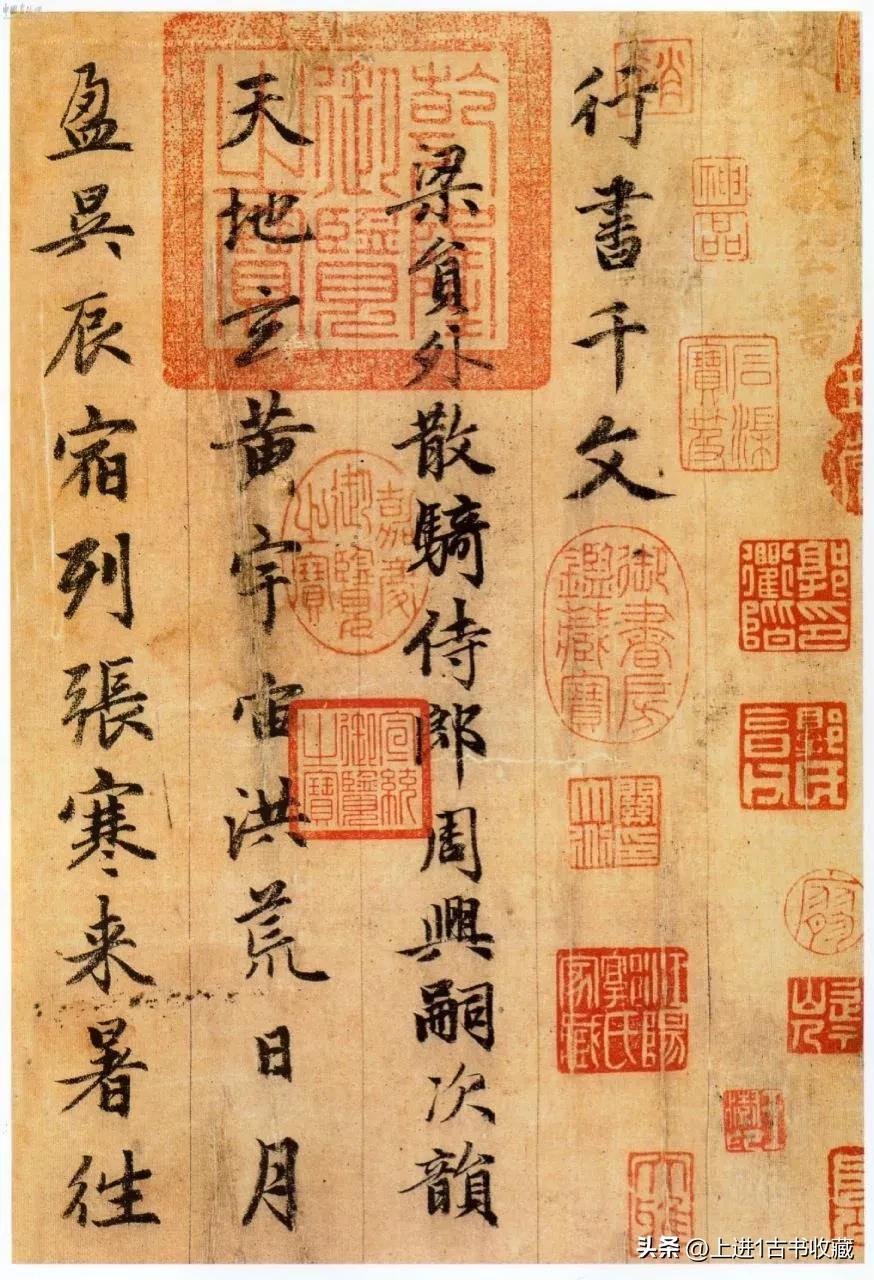 神品
石渠寶笈
行書千文
御書房鑑藏寶
梁貟外散騎侍郎周興嗣次韻
乾隆御覽之寶
嘉慶御覽之寶
宣統御覽之寶
天地玄黄宇宙洪荒日月
盈昃辰宿列張寒来暑徃
头条 @上进1古书收藏